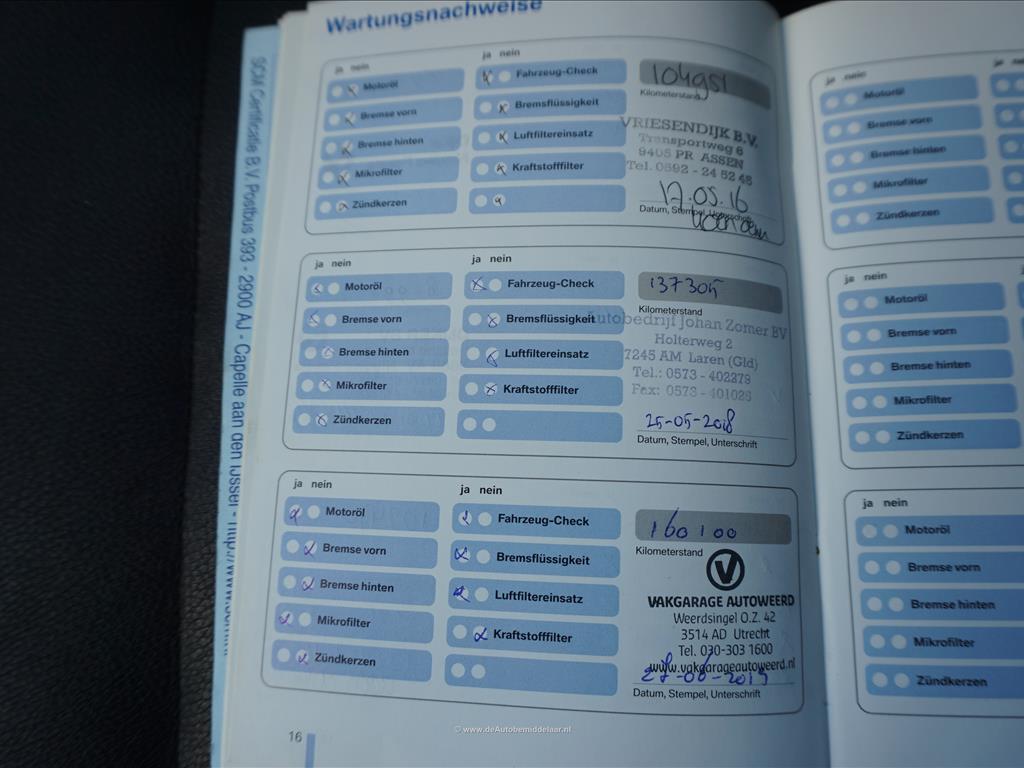 Wartungsnachweise
ja nein
ja nein
Motoröl
Fahrzeug-Check
Bremse vorn
Bremsflüssigkeit
Bremse hinten
Luftfiltereinsatz
Mikrofilter
Kraftstofffilter
Zündkerzen
104951
Kilometerstand
VRIESENDIJK B.V.
Transportweg 6
9405 PR ASSEN
Tel. 0592 - 24 52 48
17.05.16
Datum, Stempel, Unterschrift
ja nein
ja nein
Motoröl
Fahrzeug-Check
Bremse vorn
Bremsflüssigkeit
Bremse hinten
Luftfiltereinsatz
Mikrofilter
Kraftstofffilter
Zündkerzen
137305
Kilometerstand
Autobedrijf Johan Zomer BV
Holterweg 2
7245 AM Laren (Gld)
Tel.: 0573 - 402279
Fax: 0573 - 401025
25-05-2018
Datum, Stempel, Unterschrift
ja nein
ja nein
Motoröl
Fahrzeug-Check
Bremse vorn
Bremsflüssigkeit
Bremse hinten
Luftfiltereinsatz
Mikrofilter
Kraftstofffilter
Zündkerzen
160100
Kilometerstand
V
VAKGARAGE AUTOWEERD
Weerdsingel O.Z. 42
3514 AD Utrecht
Tel. 030-303 1600
www.vakgarageautoweerd.nl
27-06-2019
Datum, Stempel, Unterschrift
16
SCM Certificatie B.V. Postbus 393 - 2900 AJ - Capelle aan den IJssel - http://www.
ja nein
Motoröl
Bremse vorn
Bremse hinten
Mikrofilter
Zündkerzen
ja nein
Motoröl
Bremse vorn
Bremse hinten
Mikrofilter
Zündkerzen
ja nein
Motoröl
Bremse vorn
Bremse hinten
Mikrofilter
Zündkerzen
© www.deAutobemiddelaar.nl